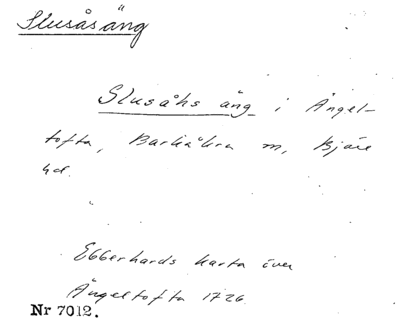 Slusåsäng
Slusåhs äng i Ängel-
tofta, Barkåkra m, Bjäre
hd.
Ebberhards karta över
Ängeltofta 1726
Nr 7012.